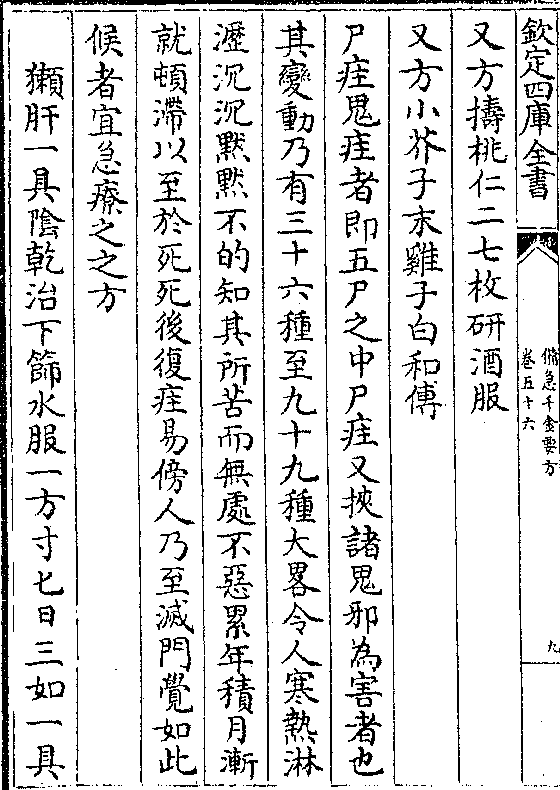 欽定四庫全書
備急千金要方
卷五十六
九
又方擣桃仁二七枚研酒服
又方小芥子末雞子白和傅
尸疰鬼疰者即五尸之中尸疰又挾諸鬼邪為害者也
其變動乃有三十六種至九十九種大畧令人寒熱淋
瀝沉沉默默不的知其所苦而無處不惡累年積月漸
就頓滯以至於死死後復疰易傍人乃至滅門覺如此
候者宜急療之之方
獺肝一具陰乾治下篩水服一方寸匕日三如一具